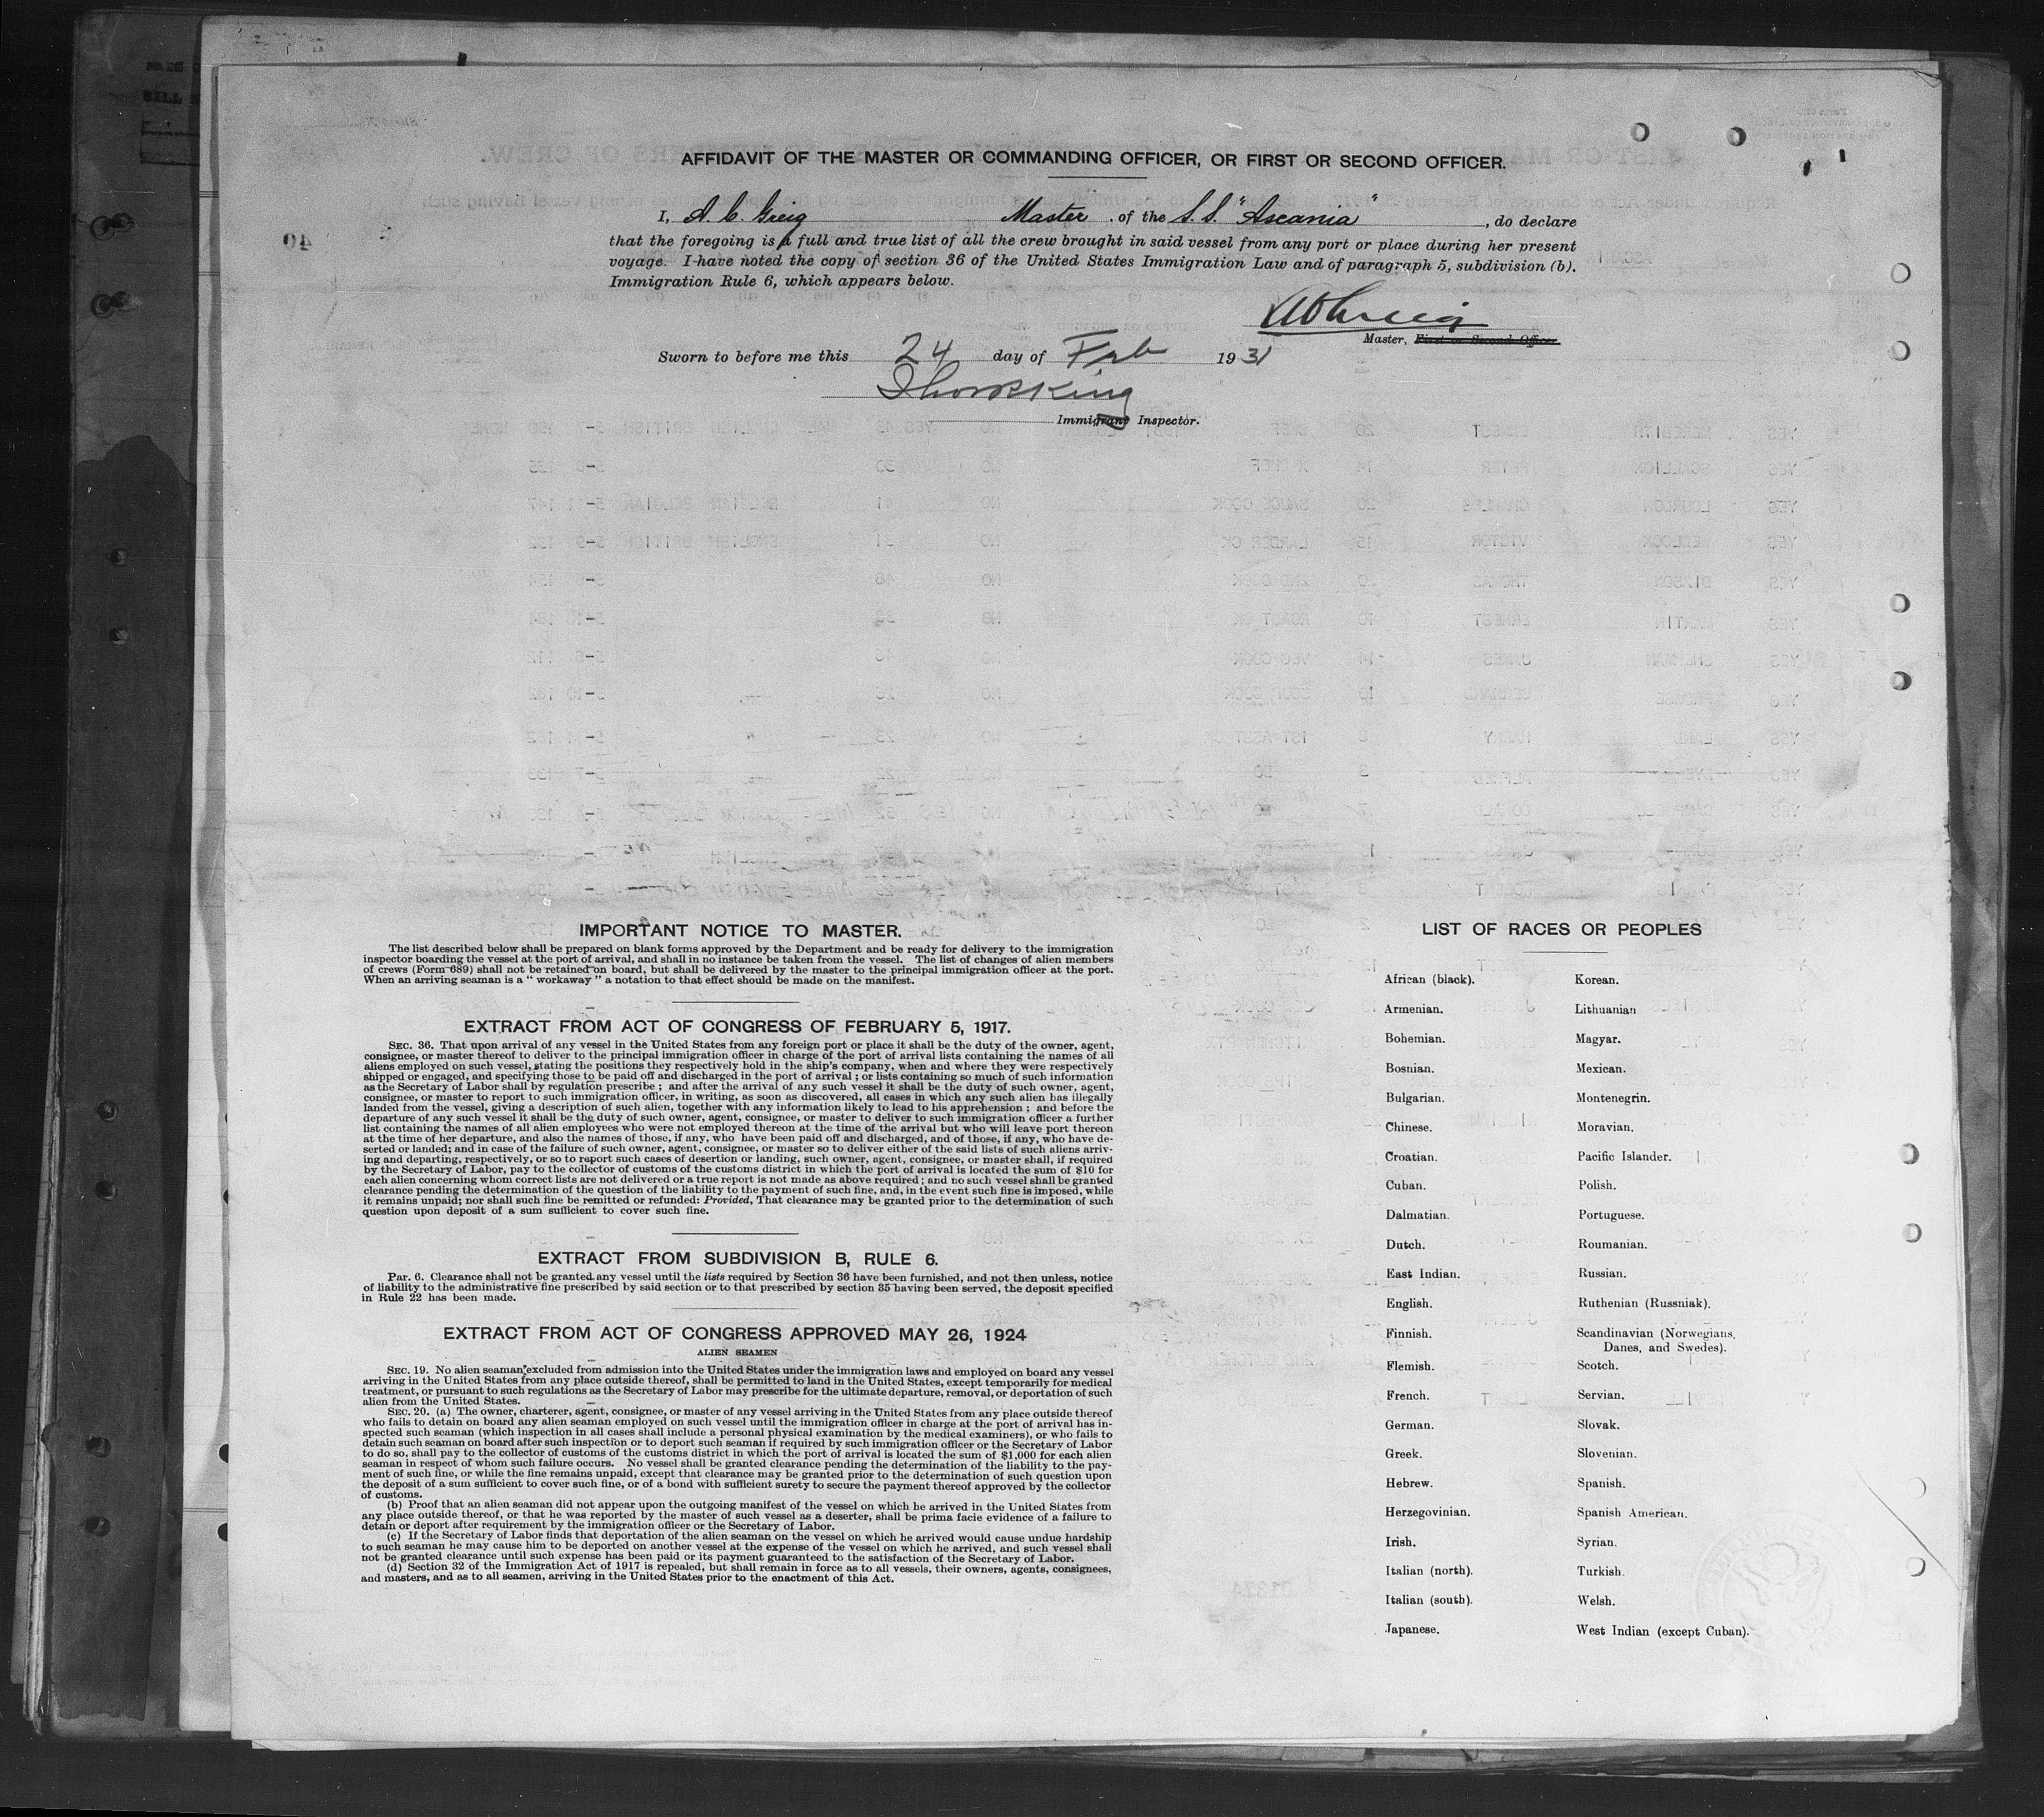 AFFIDAVIT OF THE MASTER OR COMMANDING OFFICER, OR FIRST OR SECOND OFFICER.
I, A. C. Greig Master of the S.S. "Ascania", do declare
that the foregoing is a full and true list of all the crew brought in said vessel from any port or place during her present
voyage. I have noted the copy of section 36 of the United States Immigration Law and of paragraph 5, subdivision (b),
Immigration Rule 6, which appears below.
Master, First or Second Officer.
Sworn to before me this 24 day of Feb 1931
Immigrant Inspector.
IMPORTANT NOTICE TO MASTER.
The list described below shall be prepared on blank forms approved by the Department and be ready for delivery to the immigration
inspector boarding the vessel at the port of arrival, and shall in no instance be taken from the vessel. The list of changes of alien members
of crews (Form 689) shall not be retained on board, but shall be delivered by the master to the principal immigration officer at the port.
When an arriving seaman is a "workaway" a notation to that effect should be made on the manifest.
EXTRACT FROM ACT OF CONGRESS OF FEBRUARY 5, 1917.
SEC. 36. That upon arrival of any vessel in the United States from any foreign port or place it shall be the duty of the owner, agent,
consignee, or master thereof to deliver to the principal immigration officer in charge of the port of arrival lists containing the names of all
aliens employed on such vessel, stating the positions they respectively hold in the ship's company, when and where they were respectively
shipped or engaged, and specifying those to be paid off and discharged in the port of arrival; or lists containing so much of such information
as the Secretary of Labor shall by regulation prescribe; and after the arrival of any such vessel it shall be the duty of such owner, agent,
consignee, or master to report to such immigration officer, in writing, as soon as discovered, all cases in which any such alien has illegally
landed from the vessel, giving a description of such alien, together with any information likely to lead to his apprehension; and before the
departure of any such vessel it shall be the duty of such owner, agent, consignee, or master to deliver to such immigration officer a further
list containing the names of all alien employees who were not employed thereon at the time of the arrival but who will leave port thereon
at the time of her departure, and also the names of those, if any, who have been paid off and discharged, and of those, if any, who have de-
serted or landed; and in case of the failure of such owner, agent, consignee, or master so to deliver either of the said lists of such aliens arriv-
ing and departing, respectively, or so to report such cases of desertion or landing, such owner, agent, consignee, or master shall, if required
by the Secretary of Labor, pay to the collector of customs of the customs district in which the port of arrival is located the sum of $10 for
each alien concerning whom correct lists are not delivered or a true report is not made as above required; and no such vessel shall be granted
clearance pending the determination of the question of the liability to the payment of such fine, and, in the event such fine is imposed, while
it remains unpaid; nor shall such fine be remitted or refunded: Provided, That clearance may be granted prior to the determination of such
question upon deposit of a sum sufficient to cover such fine.
EXTRACT FROM SUBDIVISION B, RULE 6.
Par. 6. Clearance shall not be granted any vessel until the lists required by Section 36 have been furnished, and not then unless, notice
of liability to the administrative fine prescribed by said section or to that prescribed by section 35 having been served, the deposit specified
in Rule 22 has been made.
EXTRACT FROM ACT OF CONGRESS APPROVED MAY 26, 1924
ALIEN SEAMEN
SEC. 19. No alien seaman excluded from admission into the United States under the immigration laws and employed on board any vessel
arriving in the United States from any place outside thereof, shall be permitted to land in the United States, except temporarily for medical
treatment, or pursuant to such regulations as the Secretary of Labor may prescribe for the ultimate departure, removal, or deportation of such
alien from the United States.
SEC. 20. (a) The owner, charterer, agent, consignee, or master of any vessel arriving in the United States from any place outside thereof
who fails to detain on board any alien seaman employed on such vessel until the immigration officer in charge at the port of arrival has in-
spected such seaman (which inspection in all cases shall include a personal physical examination by the medical examiners), or who fails to
detain such seaman on board after such inspection or to deport such seaman if required by such immigration officer or the Secretary of Labor
to do so, shall pay to the collector of customs of the customs district in which the port of arrival is located the sum of $1,000 for each alien
seaman in respect of whom such failure occurs. No vessel shall be granted clearance pending the determination of the liability to the pay-
ment of such fine, or while the fine remains unpaid, except that clearance may be granted prior to the determination of such question upon
the deposit of a sum sufficient to cover such fine, or of a bond with sufficient surety to secure the payment thereof approved by the collector
of customs.
(b) Proof that an alien seaman did not appear upon the outgoing manifest of the vessel on which he arrived in the United States from
any place outside thereof, or that he was reported by the master of such vessel as a deserter, shall be prima facie evidence of a failure to
detain or deport after requirement by the immigration officer or the Secretary of Labor.
(c) If the Secretary of Labor finds that deportation of the alien seaman on the vessel on which he arrived would cause undue hardship
to such seaman he may cause him to be deported on another vessel at the expense of the vessel on which he arrived, and such vessel shall
not be granted clearance until such expense has been paid or its payment guaranteed to the satisfaction of the Secretary of Labor.
(d) Section 32 of the Immigration Act of 1917 is repealed, but shall remain in force as to all vessels, their owners, agents, consignees,
and masters, and as to all seamen, arriving in the United States prior to the enactment of this Act.
LIST OF RACES OR PEOPLES
African (black).
Armenian.
Bohemian.
Bosnian.
Bulgarian.
Chinese.
Croatian.
Cuban.
Dalmatian.
Dutch.
East Indian.
English.
Finnish.
Flemish.
French.
German.
Greek.
Hebrew.
Herzegovinian.
Irish.
Italian (north).
Italian (south).
Japanese.
Korean.
Lithuanian
Magyar.
Mexican.
Montenegrin.
Moravian.
Pacific Islander.
Polish.
Portuguese.
Roumanian.
Russian.
Ruthenian (Russniak).
Scandinavian (Norwegians,
Danes, and Swedes).
Scotch.
Servian.
Slovak.
Slovenian.
Spanish.
Spanish American.
Syrian.
Turkish.
Welsh.
West Indian (except Cuban).